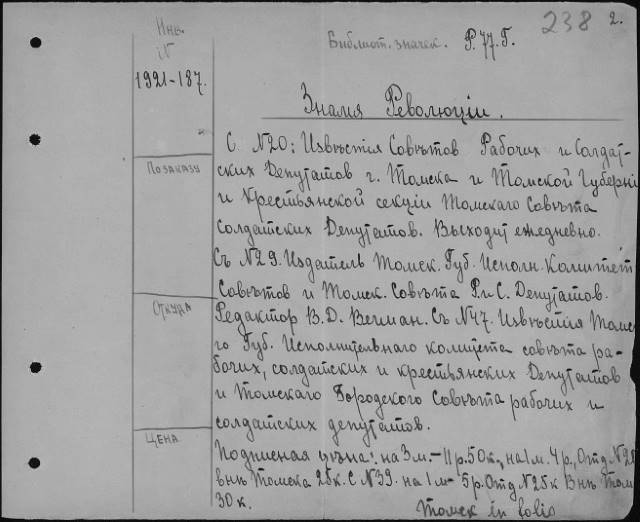 238 2.
Инв.
№
Библиот. значек. Р.77.Г.
1921-187.
Знамя Революціи.
С №20: Извѣстія Совѣтов Рабочих и Солдат-
По заказу
ских Депутатов г. Томска и Томской Губерні
и Крестьянской секціи Томскаго Совѣта
солдатских Депутатов. Выходит ежедневно.
Съ №29. Издатель Томск. Губ. Исполн. Комитет
Совѣтов и Томск. Совѣта Р. и С. Депутатов.
Откуда
Редактор В. Д. Вегман. Съ №47. Извѣстія Томск
го Губ. Исполнительнаго комитета совѣта ра-
бочих, солдатских и крестьянских Депутатов
и Томскаго Городского Совѣта рабочих и
солдатских депутатов.
Цена
Подписная цѣна: на 3 м. - 11 р. 50 к., на 1 м. 4 р., Отд №
внѣ Томска 25 к. С №39. на 1 м - 5 р. Отд №25 к Внѣ Том
30 к.
Томск in folio